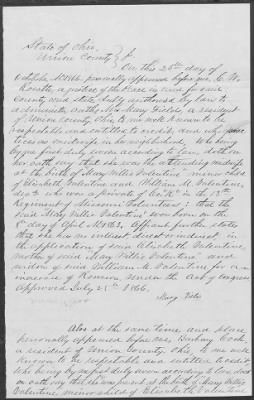 State of Ohio,
Union County } ss
On this 25th day of
October A.D. 1866, personally appeared before me, C. W.
a Justice of the Peace in and for said
County and State duly authorized by law to
administer oaths, Mrs Mary Fields, a resident
of Union County Ohio to me well known to be
respectable and entitled to credit, and who
as midwife in her neighborhood, who being
by me first duly sworn according to law doth on
her oath say that she was the attending midwife
at the birth of Mary Willie Valentine minor child
of Elizabeth Valentine and William M. Valentine,
decd who was a private of Co in the
Regiment of Missouri Volunteers; that the
said Mary Willie Valentine was born on the
8th day of April A.D. 1862. Affiant further states
that she has no interest direct or indirect in
the application of said Elizabeth Valentine,
mother of said Mary Willie Valentine and
widow of said William M. Valentine for an
increase of Pension under the Act of Congress
approved July 25th 1866.
Mary
Also at the same time and place
personally appeared before me
a resident of Union County Ohio, to me well
known to be respectable and entitled to credit,
who being by me first duly sworn according to law doth
on oath say that she was present at the birth of Mary Willie
Valentine, minor child of Elizabeth Valentine